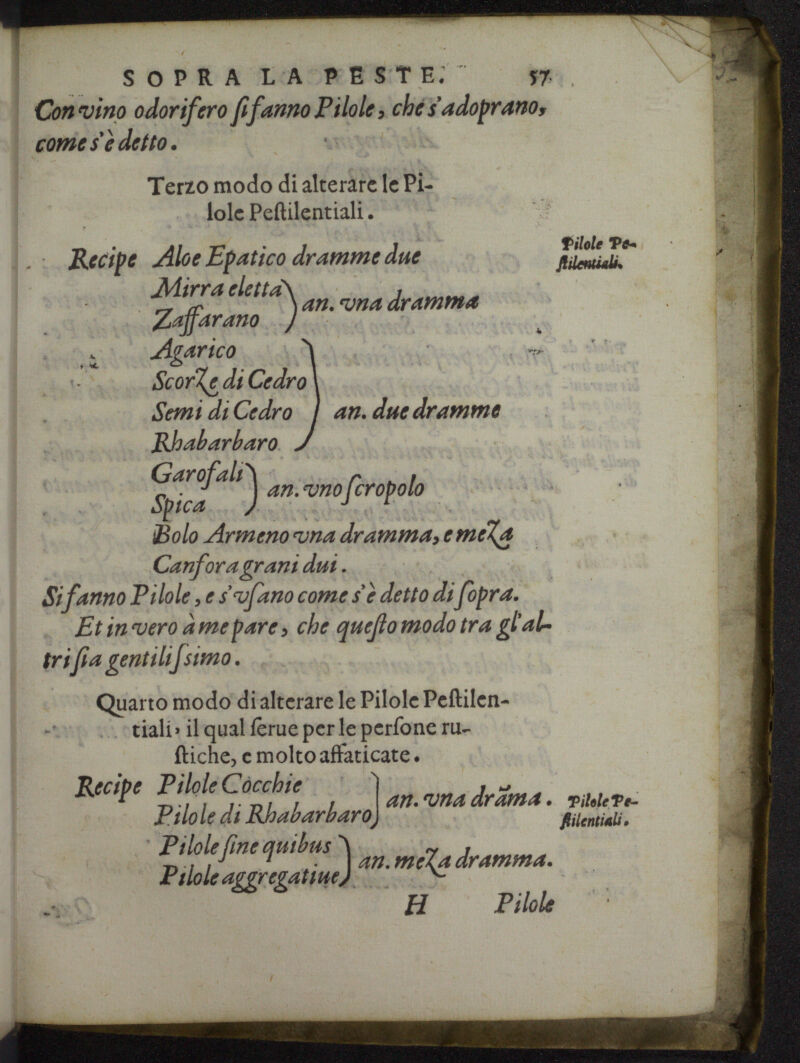 SOPRA LA PESTE. 57
Con vino odorifero si fanno Pilole, che s'adoprano,
come s'è detto.
Terzo modo di alterare le Pi-
lole Pestilentiali.
Pilole Pe-
stilentiali.
Recipe Aloe Epatico dramme due
Mirra eletta
Zaffarano } an. vna dramma
Agarico
Scorze di Cedro
Semi di Cedro
Rhabarbaro } an. due dramme
Garofali
Spica } an. vno scropolo
Bolo Armeno vna dramma, e meza
Canfora grani dui.
Si fanno Pilole, e s'vsano come s'è detto di sopra.
Et in vero à me pare, che questo modo tra gl'al-
tri sia gentilissimo.
Quarto modo di alterare le Pilole Pestilen-
tiali, il qual serue per le persone ru-
stiche, e molto affaticate.
Recipe Pilole Còcchie
Pilole di Rhabarbaro } an. vna drãma.
Pilole Pe-
stilentiali.
Pilole sine quibus
Pilole aggregatiue } an. meza dramma.
H Pilole